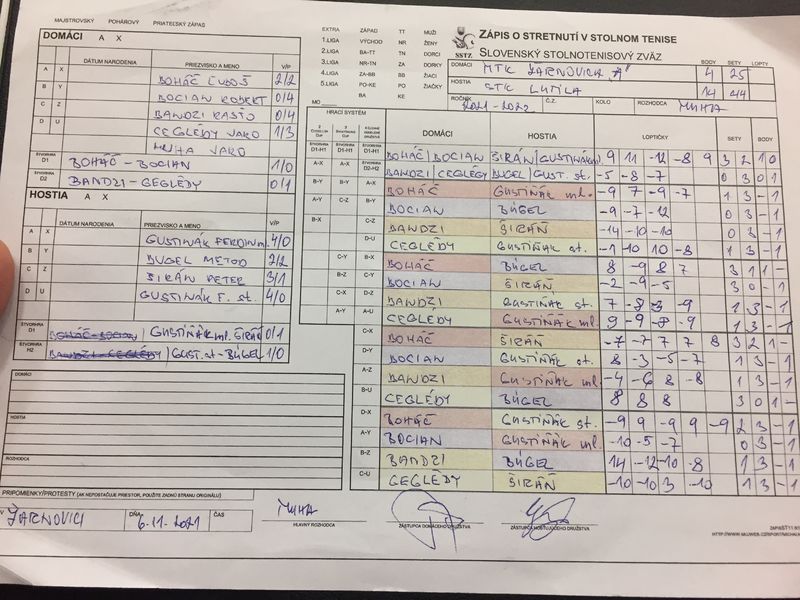 MAJSTROVSKÝ POHÁROVÝ PRIATEĽSKÝ ZÁPAS
DOMÁCI A X
DÁTUM NARODENIA PRIEZVISKO A MENO V/P
A X BOHÁČ ĽUBOŠ 2/2
B Y BOCIAN ROBERT 0/4
C Z BANDZI RASŤO 0/4
D U CEGLÉDY JARO 1/3
MUHA JARO
ŠTVORHRA D1 BOHÁČ - BOCIAN 1/0
ŠTVORHRA D2 BANDZI - CEGLÉDY 0/1
HOSTIA A X
DÁTUM NARODENIA PRIEZVISKO A MENO V/P
A X GUSTIŇÁK FERDIN ml. 4/0
B Y BÚGEL METOD 2/2
C Z ŠIRÁN PETER 3/1
D U GUSTIŇÁK F. st. 4/0
ŠTVORHRA D1 BOHÁČ - BOCIAN / GUSTIŇÁK ml. ŠIRÁŇ 0/1
ŠTVORHRA H2 BANDZI - CEGLÉDY / GUST. st - BÚGEL 1/0
DOMÁCI
HOSTIA
ROZHODCA
PRIPOMIENKY/PROTESTY (AK NEPOSTAČUJE PRIESTOR, POUŽITE ZADNÚ STRANU ORIGINÁLU)
V ŽARNOVICI DŇA 6.11.2021 ČAS
MUHA
HLAVNÝ ROZHODCA
ZÁSTUPCA DOMÁCEHO DRUŽSTVA
ZÁSTUPCA HOSŤUJÚCEHO DRUŽSTVA
EXTRA ZÁPAD TT MUŽI
1.LIGA VÝCHOD NR ŽENY
2.LIGA BA-TT TN DORCI
3.LIGA NR-TN ZA DORKY
4.LIGA ZA-BB BB ŽIACI
5.LIGA PO-KE PO ŽIAČKY
BA KE
MO
SSTZ
ZÁPIS O STRETNUTÍ V STOLNOM TENISE
SLOVENSKÝ STOLNOTENISOVÝ ZVÄZ
BODY SETY LOPTY
DOMÁCI MTK ŽARNOVICA "A" 4 25
HOSTIA STK LUTILA 14 44
ROČNÍK 2021-2022 Č.Z. KOLO ROZHODCA MUHA
HRACÍ SYSTÉM
DOMÁCI HOSTIA LOPTIČKY SETY BODY
D1-H1 D1-H1 D1-H1 BOHÁČ/BOCIAN ŠIRÁN/GUSTIŇÁK ml. 9 11 -12 -8 9 3 2 1 0
A-X A-X D2-H2 BANDZI/CEGLÉDY BÚGEL/GUST. st. -5 -8 -7 0 3 0 1
B-Y B-Y A-X BOHÁČ GUSTIŇÁK ml. -9 7 -9 -7 1 3 - 1
A-Y C-Z B-Y BOCIAN BÚGEL -9 -7 -12 0 3 - 1
B-X C-Z BANDZI ŠIRÁN -14 -10 -10 0 3 - 1
D-U CEGLÉDY GUSTIŇÁK st. -7 10 10 -8 1 3 - 1
C-Y B-X BOHÁČ BÚGEL 8 -9 8 7 3 1 1 -
B-Z C-Y BOCIAN ŠIRÁN -2 -9 -5 3 0 - 1
C-X D-Z BANDZI GUSTIŇÁK st. 7 -8 -3 -9 1 3 - 1
A-Y A-U CEGLÉDY GUSTIŇÁK ml. 9 -9 -8 -9 1 3 - 1
C-X BOHÁČ ŠIRÁN -7 -7 7 7 8 3 2 1 -
D-Y BOCIAN GUSTIŇÁK st. 8 -3 -5 -7 1 3 - 1
A-Z BANDZI GUSTIŇÁK ml. -4 -6 8 -8 1 3 - 1
B-U CEGLÉDY BÚGEL 8 8 8 3 0 1 -
D-X BOHÁČ GUSTIŇÁK st. -9 9 9 -9 -9 2 3 - 1
A-Y BOCIAN GUSTIŇÁK ml. -10 -5 -7 0 3 - 1
B-Z BANDZI BÚGEL 14 -12 -10 -8 1 3 - 1
C-U CEGLÉDY ŠIRÁN -10 -10 3 -10 1 3 - 1